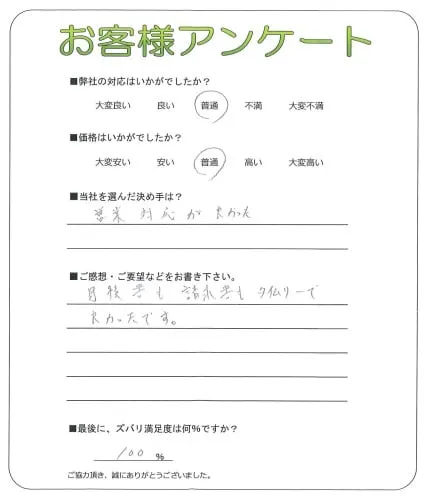 お客様アンケート
■弊社の対応はいかがでしたか?
大変良い 良い 普通 不満 大変不満
■価格はいかがでしたか?
大変安い 安い 普通 高い 大変高い
■当社を選んだ決め手は?
営業対応が良かった
■ご感想・ご要望などをお書き下さい。
見積書も請求書もタイムリーで
良かったです。
■最後に、ズバリ満足度は何%ですか?
100 %
ご協力頂き、誠にありがとうございました。